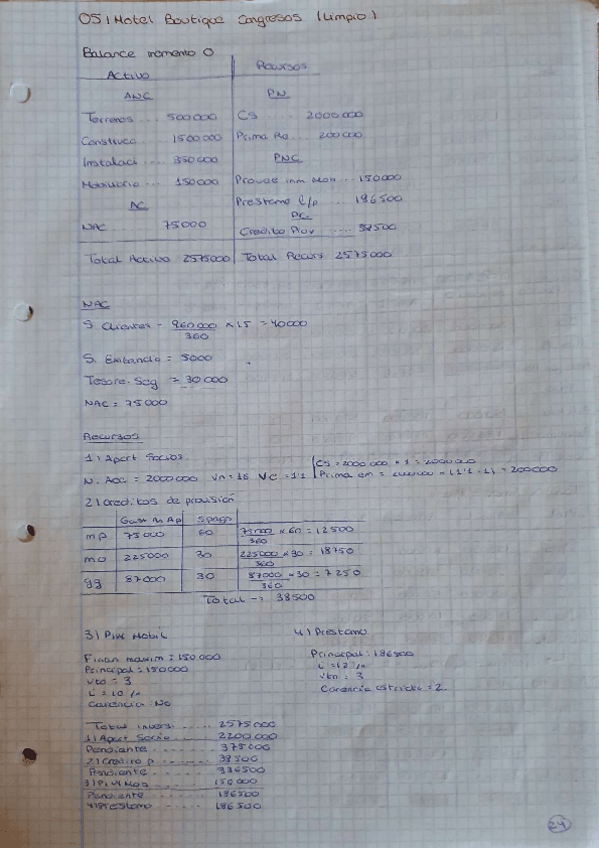 05 | Hotel Boutique Congresos (Limpio)
Balance momento 0
Activo | Recursos
ANC | PN
Terrenos ... 500000 | CS ... 2000000
Construcc ... 1500000 | Prima Ra ... 200000
Instalaci ... 350000 | PNC
Mobiliario ... 150000 | Provee inm Mon ... 150000
AC | Prestamo L/p ... 186500
NAC ... 75000 | PC
Credito Prov ... 38500
Total Activo 2575000 | Total Recurs 2575000
NAC
S. Clientes = 960000/360 x 15 = 40000
S. Existencia = 5000
Tesore. Seg = 30000
NAC = 75000
Recursos
1) Aport Socios. | CS = 2000 000 * 1 = 2000000
N. Acc = 2000000 Vn = 1$ VE = 1'1 | Prima em = 2000000 * (1'1 - 1) = 200000
2) Creditos de provisión
Gast N Ap | S pago
mp | 75000 | 60 | 75000/360 x 60 = 12500
mo | 225000 | 30 | 225000/360 * 30 = 18750
gg | 87000 | 30 | 87000/360 * 30 = 7250
Total -> 38500
3) PIM Mobil
Finan maxim = 150.000
Principal = 150000
Vto = 3
i = 10 %
Carencia = No
4) Prestamo
Principal = 186500
i = 12 %
Vtn = 3
Carencia estricta = 2
Total invers ... 2575000
1) Aport Socio ... 2200000
Pendiente ... 375000
2) Credito p ... 38500
Pendiente ... 336500
3) PIM Mob ... 150000
Pendiente ... 186500
4) Prestamo ... 186500
24